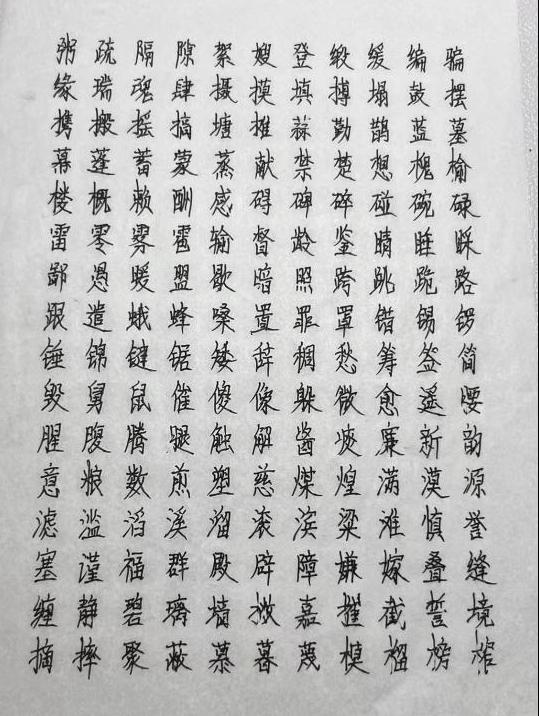 粥疏隔隙絮嫂登缎缓编骗
缘瑞魂肆摄摸填搏塌鼓摆
携搬摇搞塘摊蒜勤鹊蓝墓
幕蓬蓄蒙蒸献禁楚想槐榆
楼概赖酬感碍碑碎碰碗碌
雷零雾雹输督龄鉴睛睡睬
鄙愚暖盟歇暗照跨跳跪路
跟遣蛾蜂嗓置罪罩错锡锣
锤锦键锯矮辞稠愁筹签简
毁舅鼠催傻像躲微愈遥腰
腥腹腾腿触解酱痰廉新韵
意粮数煎塑慈煤煌满漠源
滤滥滔溪溜滚滨粱滩慎誉
塞谨福群殿辟障嫌嫁叠缝
缠静碧璃墙撇嘉摧截誓境
摘摔聚蔽慕暮蔑模榴榜榨